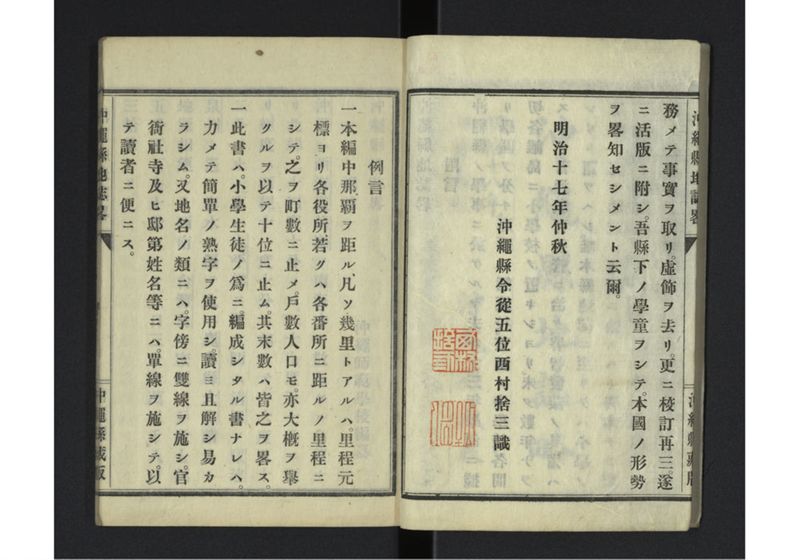 沖繩縣地誌畧
務メテ事實ヲ取リ。虛飾ヲ去リ。更ニ校訂再三。遂
ニ活版ニ附シ。吾縣下ノ學童ヲシテ。本國ノ形勢
ヲ畧知セシメント云爾。
明治十七年仲秋
沖繩縣令從五位西村捨三識
例言
一本編中那覇ヲ距ル、凡ソ幾里トアルハ。里程元
標ヨリ各役所、若クハ各番所ニ距ルノ里程ニ
シテ。之ヲ町數ニ止メ。戶數人口モ。亦大槪ヲ擧
クルヲ以テ十位ニ止ム。其末數ハ皆之ヲ畧ス。
一此書ハ。小學生徒ノ爲ニ編成シタル書ナレハ。
力メテ簡單ノ熟字ヲ使用シ讀ミ且解シ易カ
ラシム。又地名ノ類ニハ。字傍ニ雙線ヲ施シ。官
衙社寺及ヒ邸第姓名等ニハ。單線ヲ施シテ。以
テ讀者ニ便ニス。
沖繩縣地誌畧
沖繩縣藏版